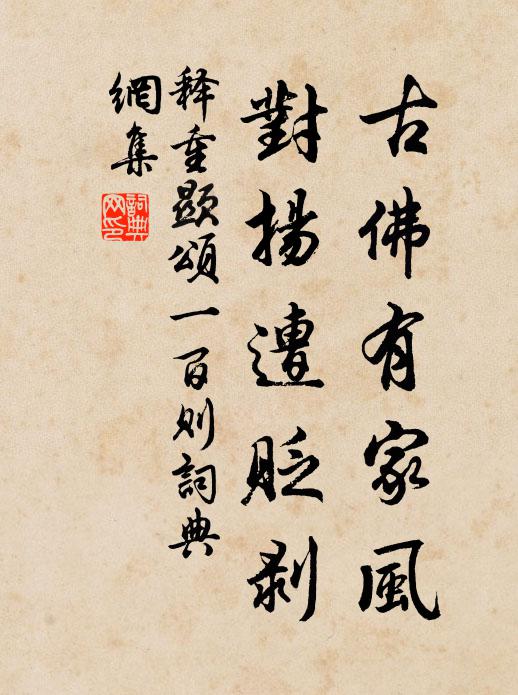 古佛有家風
對揚遭貶剥
释重顯頌一百则詞典
網集
詞典
网印